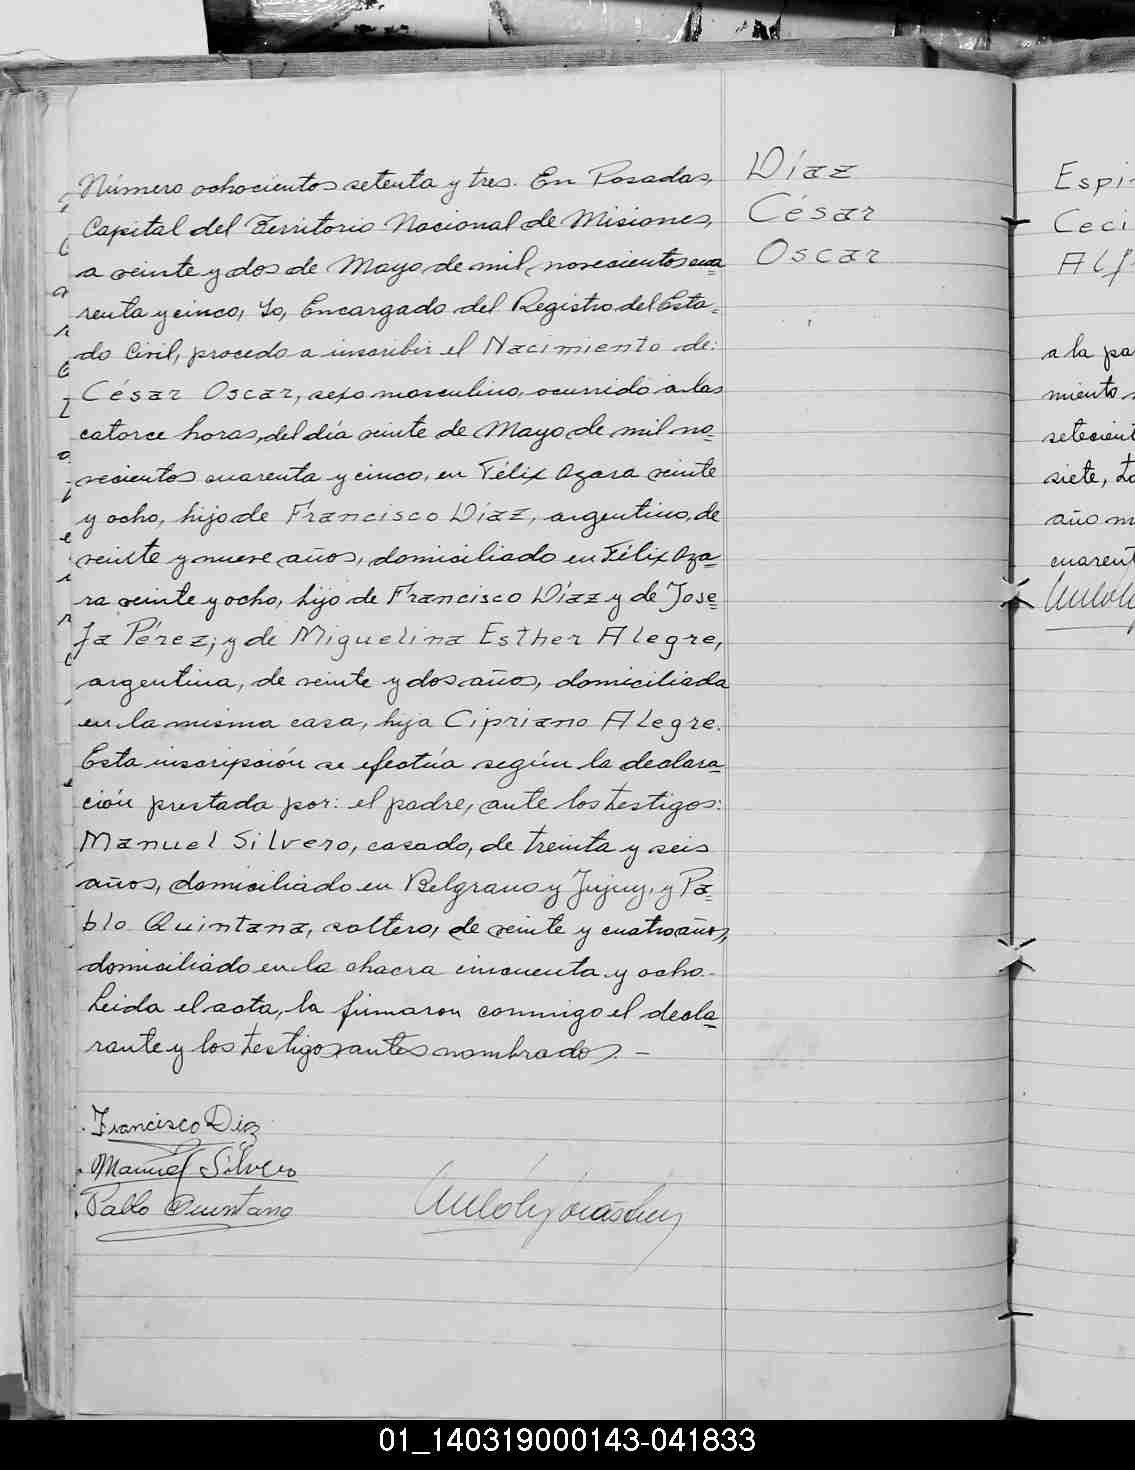 Número ochocientos setenta y tres. En Posadas,
Capital del Territorio Nacional de Misiones,
a veinte y dos de Mayo de mil novecientos cua
renta y cinco, Yo, Encargado del Registro del Esta=
do Civil, procedo a inscribir el Nacimiento de:
César Oscar, sexo masculino, ocurrido a las
catorce horas, del día veinte de Mayo de mil no=
vecientos cuarenta y cinco, en Félix Azara veinte
y ocho, hijo de Francisco Díaz, argentino, de
veinte y nueve años, domiciliado en Félix Aza=
ra veinte y ocho, hijo de Francisco Díaz y de Jose=
fa Pérez; y de Miguelina Esther Alegre,
argentina, de veinte y dos años, domiciliada
en la misma casa, hija Cipriano Alegre.
Esta inscripción se efectúa según la declara=
ción prestada por: el padre, ante los testigos:
Manuel Silvero, casado, de treinta y seis
años, domiciliado en Belgrano y Jujuy, y Pa=
blo Quintana, soltero, de veinte y cuatro años,
domiciliado en la chacra cincuenta y ocho.
Leida el acta, la firmaron conmigo el decla=
rante y los testigos antes nombrados. —
Francisco Diaz
Manuel Silvero
Pablo Quintana
Díaz
César
Oscar
Espi
Ceci
Alf
a la pa
miento
setecient
siete,
año m
cuarent
01_140319000143-041833